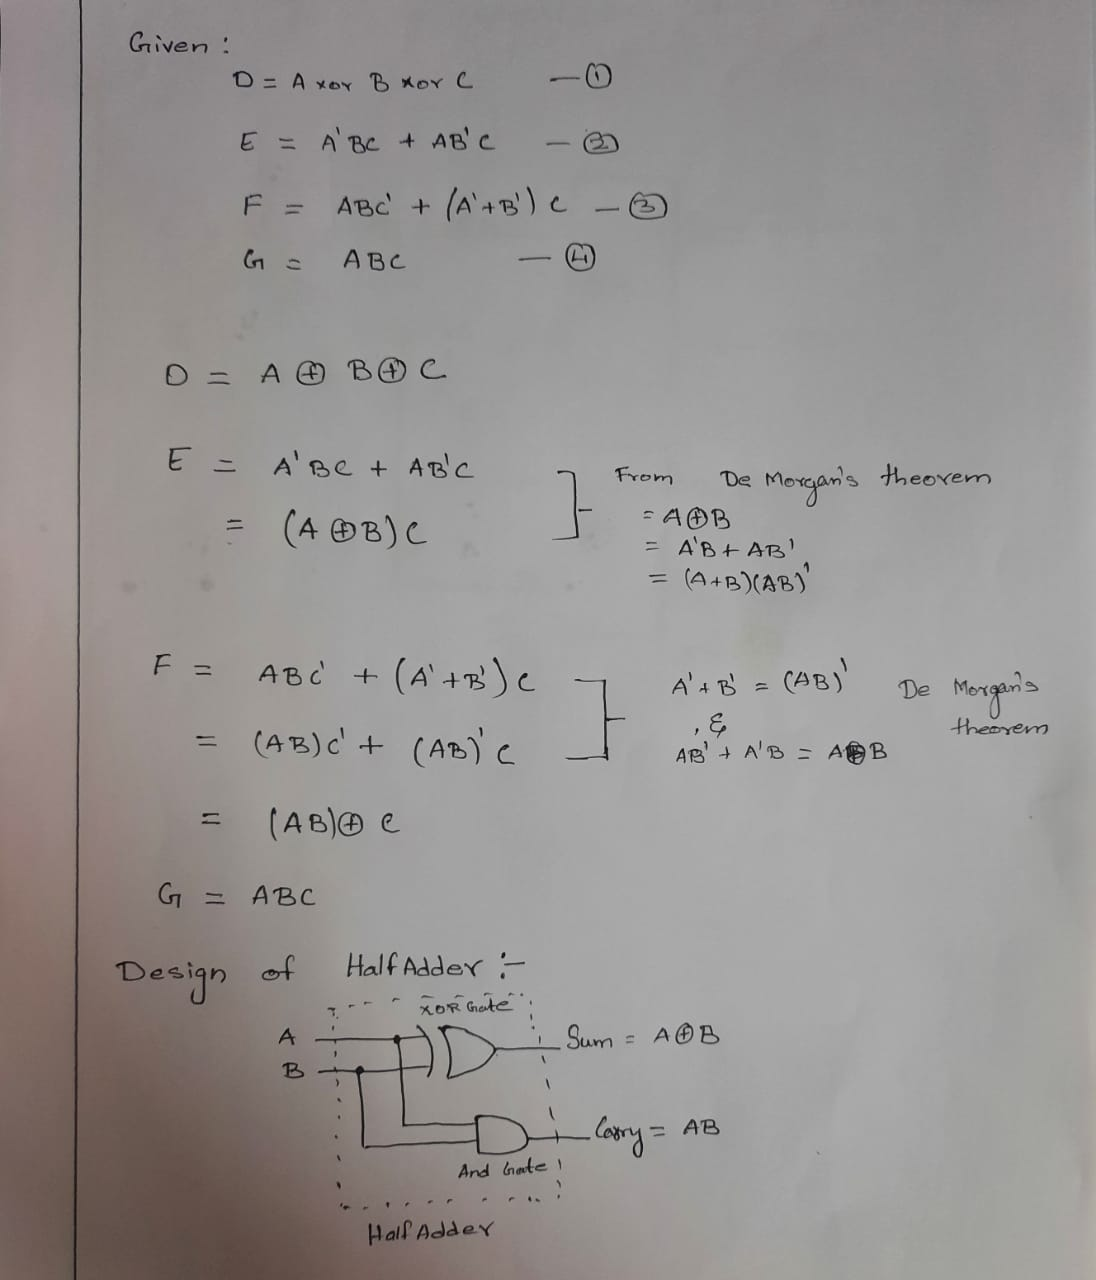 Given :
D = A xor B xor C — ①
E = A'BC + AB'C — ②
F = ABC' + (A'+B')C — ③
G = ABC — ④
D = A ⊕ B ⊕ C
E = A'BC + AB'C
= (A ⊕ B)C
From De Morgan's theorem
= A⊕B
= A'B + AB'
= (A+B)(AB)'
F = ABC' + (A'+B')C
= (AB)C' + (AB)'C
A'+B' = (AB)' De Morgan's theorem
, &
AB' + A'B = A⊕B
= (AB)⊕C
G = ABC
Design of Half Adder :-
XOR Gate
A
B
Sum = A⊕B
Carry = AB
And Gate
Half Adder